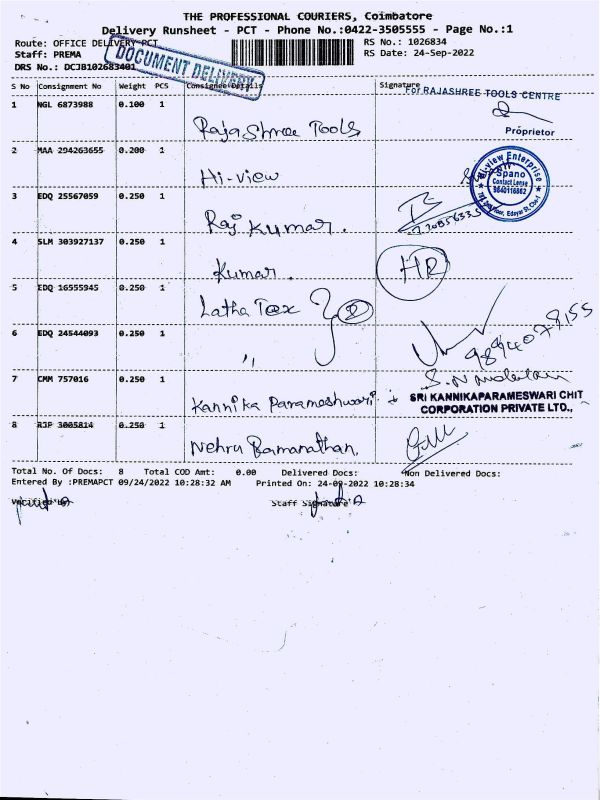 THE PROFESSIONAL COURIERS, Coimbatore
Delivery Runsheet - PCT - Phone No.:0422-3505555 - Page No.:1
Route: OFFICE DELIVERY-PCT
RS No.: 1026834
Staff: PREMA
RS Date: 24-Sep-2022
DRS No.: DCJB102683401
DOCUMENT DELIVERY
S No Consignment No Weight PCS Consignee Details Signature
For RAJASHREE TOOLS CENTRE
Proprietor
1 NGL 6873988 0.100 1
Rajashree Tools
2 MAA 294263655 0.200 1
Hi-view
Hi-view Enterprise
Spano
Contact Lense
9840116862
3 EDQ 25567059 0.250 1
Raj Kumar.
4 SLM 303927137 0.250 1
Kumar.
HR
5 EDQ 16555945 0.250 1
Latha Tex 2
6 EDQ 24544093 0.250 1
"
7 CMM 757016 0.250 1
Kannika Parameshwari
SRI KANNIKAPARAMESWARI CHIT
CORPORATION PRIVATE LTD.,
8 RJP 3005814 0.250 1
Nehru Ramanathan.
Total No. Of Docs: 8 Total COD Amt: 0.00 Delivered Docs: Non Delivered Docs:
Entered By :PREMAPCT 09/24/2022 10:28:32 AM Printed On: 24-09-2022 10:28:34
Verified By
Staff Signature